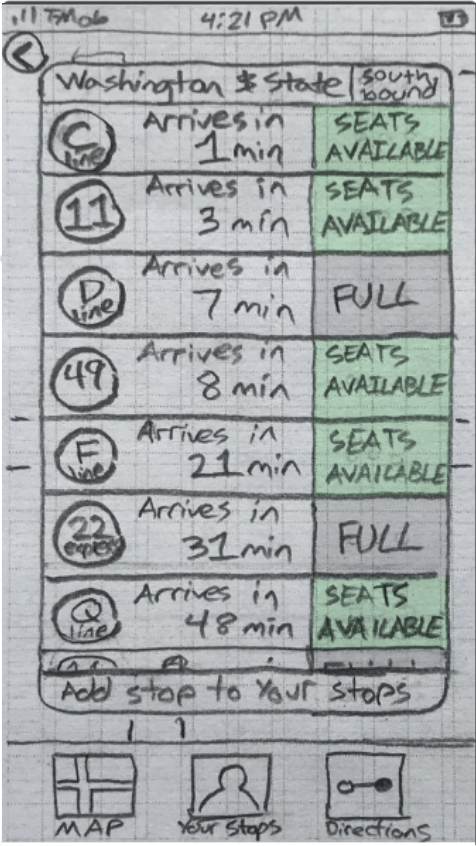 TMob 4:21 PM
Washington & State south bound
C line Arrives in 1 min SEATS AVAILABLE
11 Arrives in 3 min SEATS AVAILABLE
D line Arrives in 7 min FULL
49 Arrives in 8 min SEATS AVAILABLE
F line Arrives in 21 min SEATS AVAILABLE
22 express Arrives in 31 min FULL
Q line Arrives in 48 min SEATS AVAILABLE
Add stop to Your stops
MAP Your Stops Directions